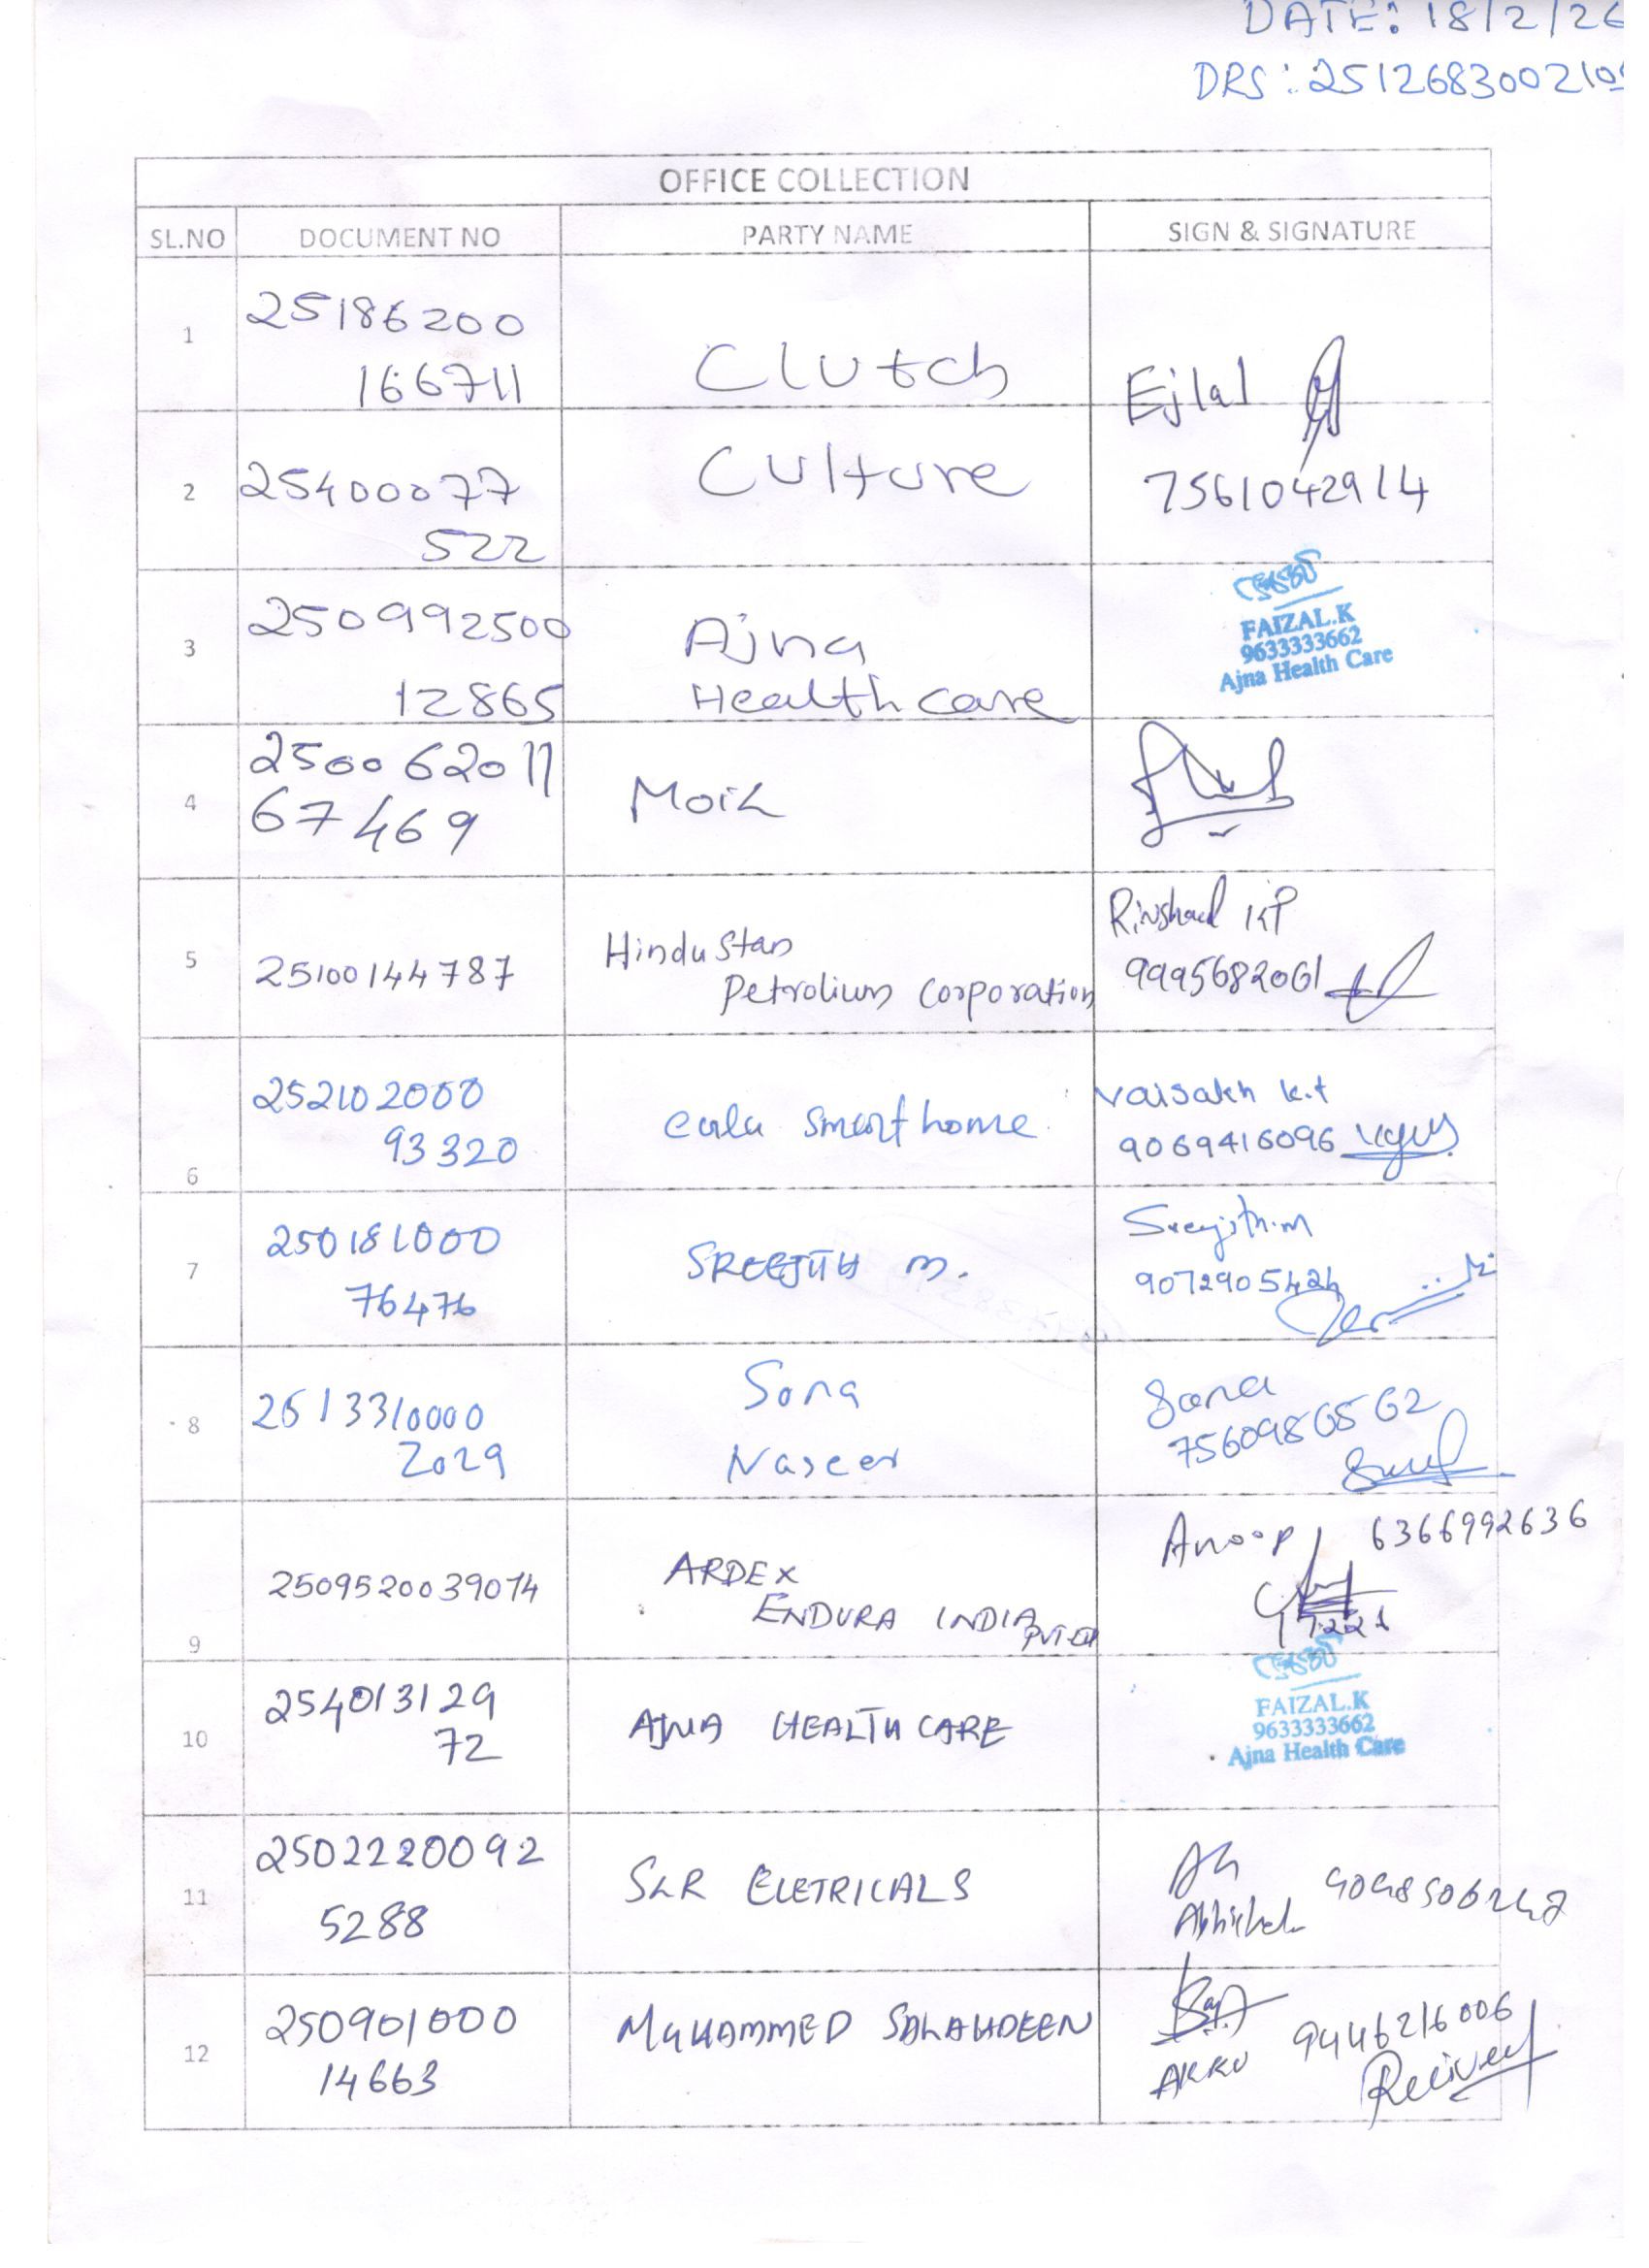 DATE: 18/2/26
DRS: 25126830021
OFFICE COLLECTION
SL.NO DOCUMENT NO PARTY NAME SIGN & SIGNATURE
1
25186200
166711
Clutch
Ejlal
2
25400077
522
Culture
7561042914
3
250992500
12865
Ajna
Health care
FAIZAL.K
9633333662
Ajna Health Care
4
250062011
67469
5
25100144787
Hindustan
Petrolium Corporation
Rinshad KP
9995682061
6
252102000
93320
smart home
vaisakh k.t
9069416096
7
250181000
76476
SREEJITH M.
Sreejith.m
9072905424
8
2513310000
2029
Sona
Naseer
Sona
9
2509520039074
ARDEX
ENDURA INDIA
Anoop 6366992636
10
254013129
72
AJNA HEALTH CARE
FAIZAL.K
9633333662
Ajna Health Care
11
2502220092
5288
SLR ELETRICALS
12
250901000
14663
MUHAMMED SALAHDEEN
9446216006
AKKU